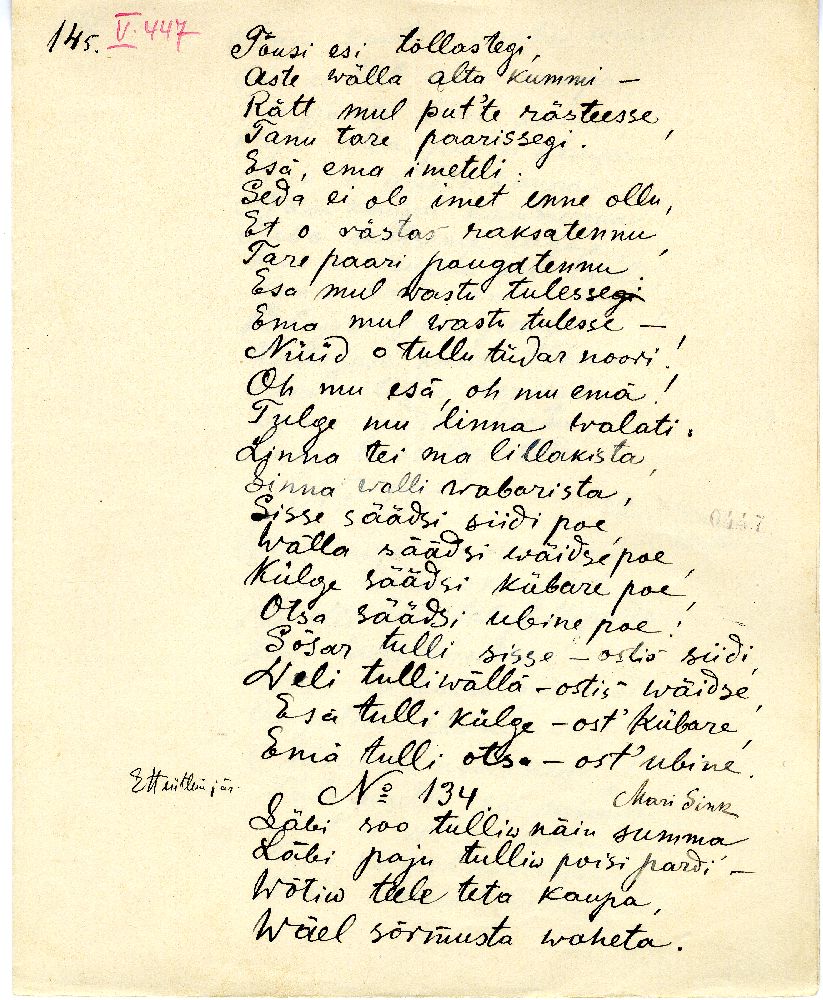 145. V. 447
Tõusi esi tõllastegi,
Aste wälla alta kummi —
Rätt mul put'te rästeesse,
Tanu tare paarissegi.
Esä, ema imeteli:
Seda ei ole imet enne ollu,
Et o rästas raksatennu,
Tare paari paugatennu.
Esa mul wastu tulessegi
Ema mul wastu tulesse —
Nüüd o tullu tüdar noori!
Oh mu esä, oh mu emä!
Tulge mu linna walati.
Linna tei ma lillakista,
Linna walli wabarista,
Sisse säädsi siidi poe,
Wälla säädsi wäidse poe,
Külge säädsi kübare poe,
Otsa säädsi ubine poe!
Sõsar tulli sisse – ostis siidi,
Weli tulli wällä – ostis wäidse,
Esä tulli külge – ost' kübare,
Emä tulli otsa – ost' ubine.
No 134. Mari Sink
Läbi soo tulliw näiu summa
Läbi paju tulliw poisi pardi —
Wõtiw teele teta kaupa,
Wäel sõrmusta waheta.